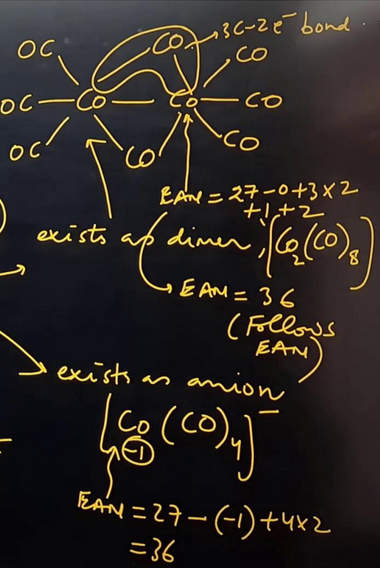 OC CO → 3C-2e⁻ bond.
CO
OC — Co — Co — CO
OC CO CO
EAN = 27-0+3×2
+1+2
exists as dimer, [Co₂(CO)₈]
→ EAN = 36
(Follows
EAN)
→ exists as anion
[Co(CO)₄]⁻
-1
EAN = 27-(-1)+4×2
=36